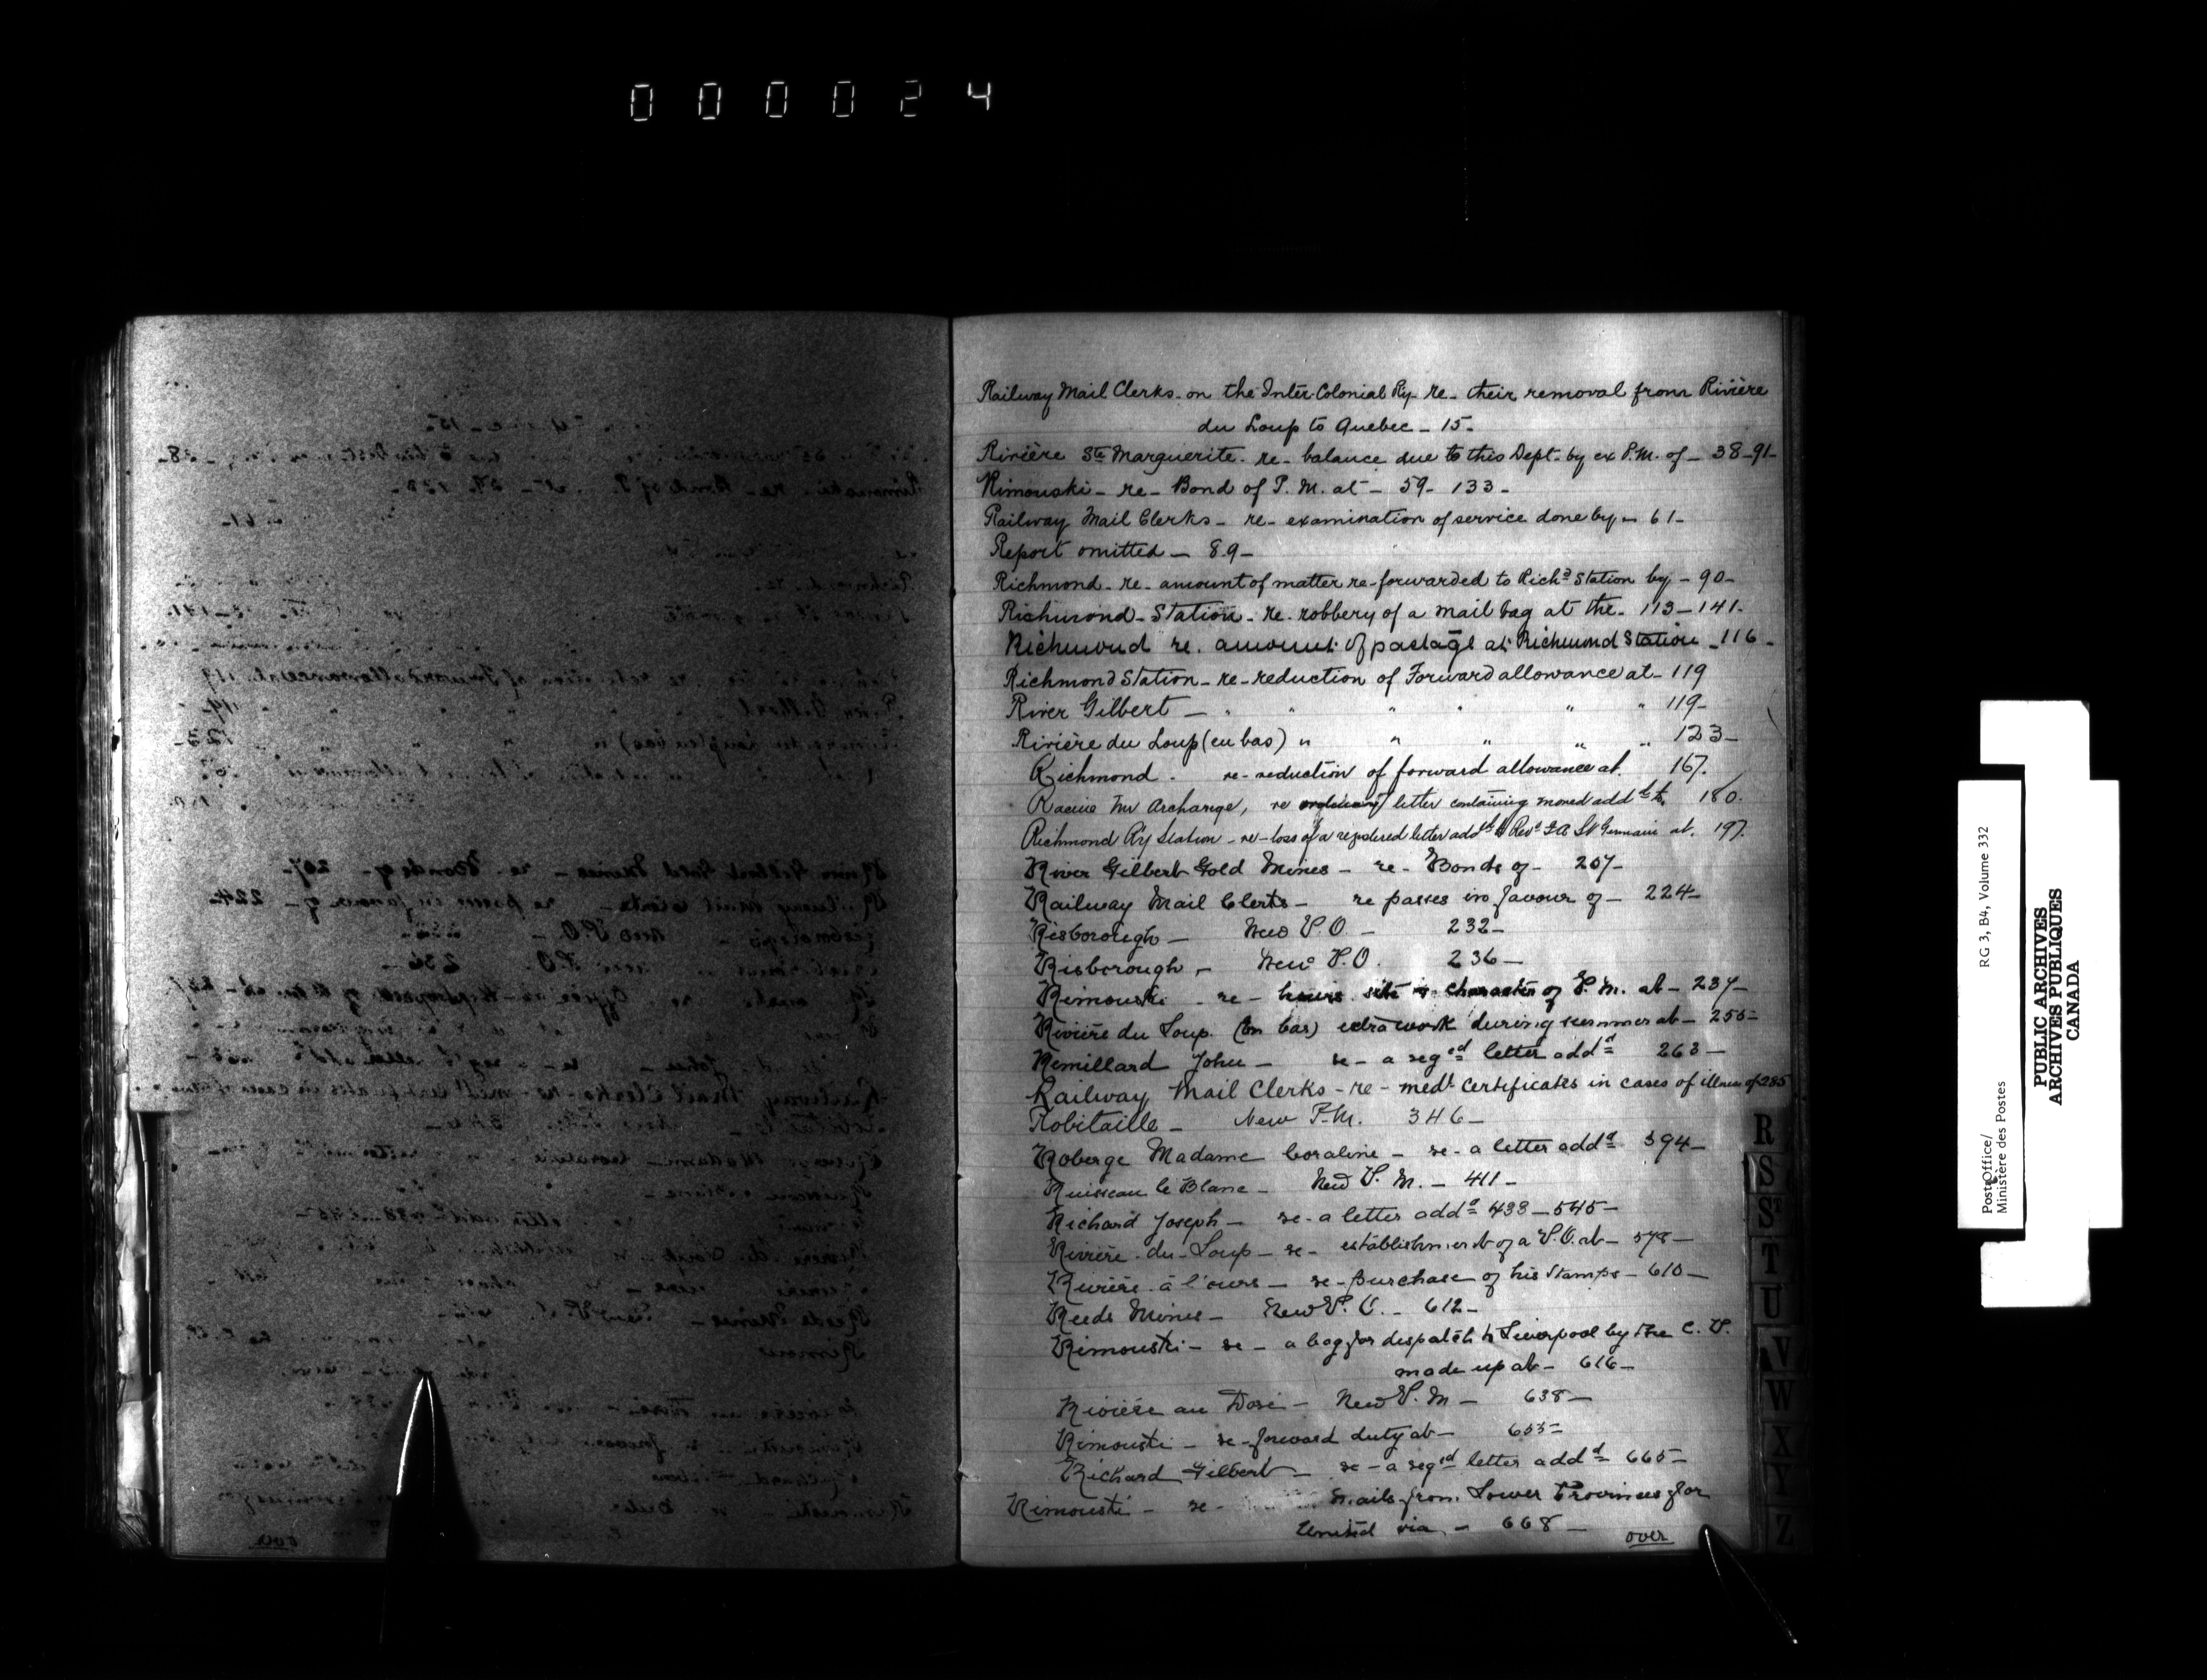 000024
Railway Mail Clerks - on the Inter-Colonial Ry - re - their removal from Rivière
du Loup to Quebec - 15 -
Rivière Ste Marguerite - re - balance due to this Dept. by ex P.M. of - 38 - 91 -
Rimouski - re - Bond of P. M. at - 59 - 133 -
Railway Mail Clerks - re - examination of service done by - 61 -
Report omitted - 89 -
Richmond - re - amount of matter re-forwarded to Richd Station by - 90 -
Richmond - Station - re - robbery of a mail bag at the - 113 - 141 -
Richmond re. amount of postage at Richmond Station - 116 -
Richmond Station - re - reduction of Forward allowance at - 119
River Gilbert - " " " " " " 119 -
Rivière du Loup (en bas) " " " " " 123 -
Richmond - re - reduction of forward allowance at. 167.
Racine Mr Archange, re letter containing money addd to, 180.
Richmond Ry Station - re - loss of a registered letter addd to Revd St Germain at. 197.
River Gilbert Gold Mines - re - Bonds of - 207 -
Railway Mail Clerks - re passes in favour of - 224 -
Risborough - New P.O. - 232 -
Risborough - New P.O. 236 -
Rimouski - re - hours site & character of P. M. at - 237 -
Rivière du Loup (en bas) extra work during summer at - 255 -
Remillard John - re - a regd letter addd 263 -
Railway Mail Clerks - re - medl certificates in cases of illness of 285
Robitaille - New P.M. 346 -
Roberge Madame Coraline - re - a letter addd 394 -
Ruisseau le Blanc - New P. M. - 411 -
Richard Joseph - re - a letter addd 433 - 545 -
Rivière - du - Loup - re - establishment of a P.O. at - 578 -
Rivière à l'ours - re - purchase of his stamps - 610 -
Reeds Mines - New P. O. - 612 -
Rimouski - re - a bag for despatch to Liverpool by the C. P.
made up at - 616 -
Rivière au Doré - New P. M - 638 -
Rimouski - re - forward duty at - 653 -
Richard Gilbert - re - a regd letter addd 665 -
Rimouski - re - Mails from Lower Provinces for
United via - 668 -
over
R
S
St
T
U
V
W
X
Y
Z
Post Office/ RG 3, B4, Volume 332
Ministère des Postes
PUBLIC ARCHIVES
ARCHIVES PUBLIQUES
CANADA